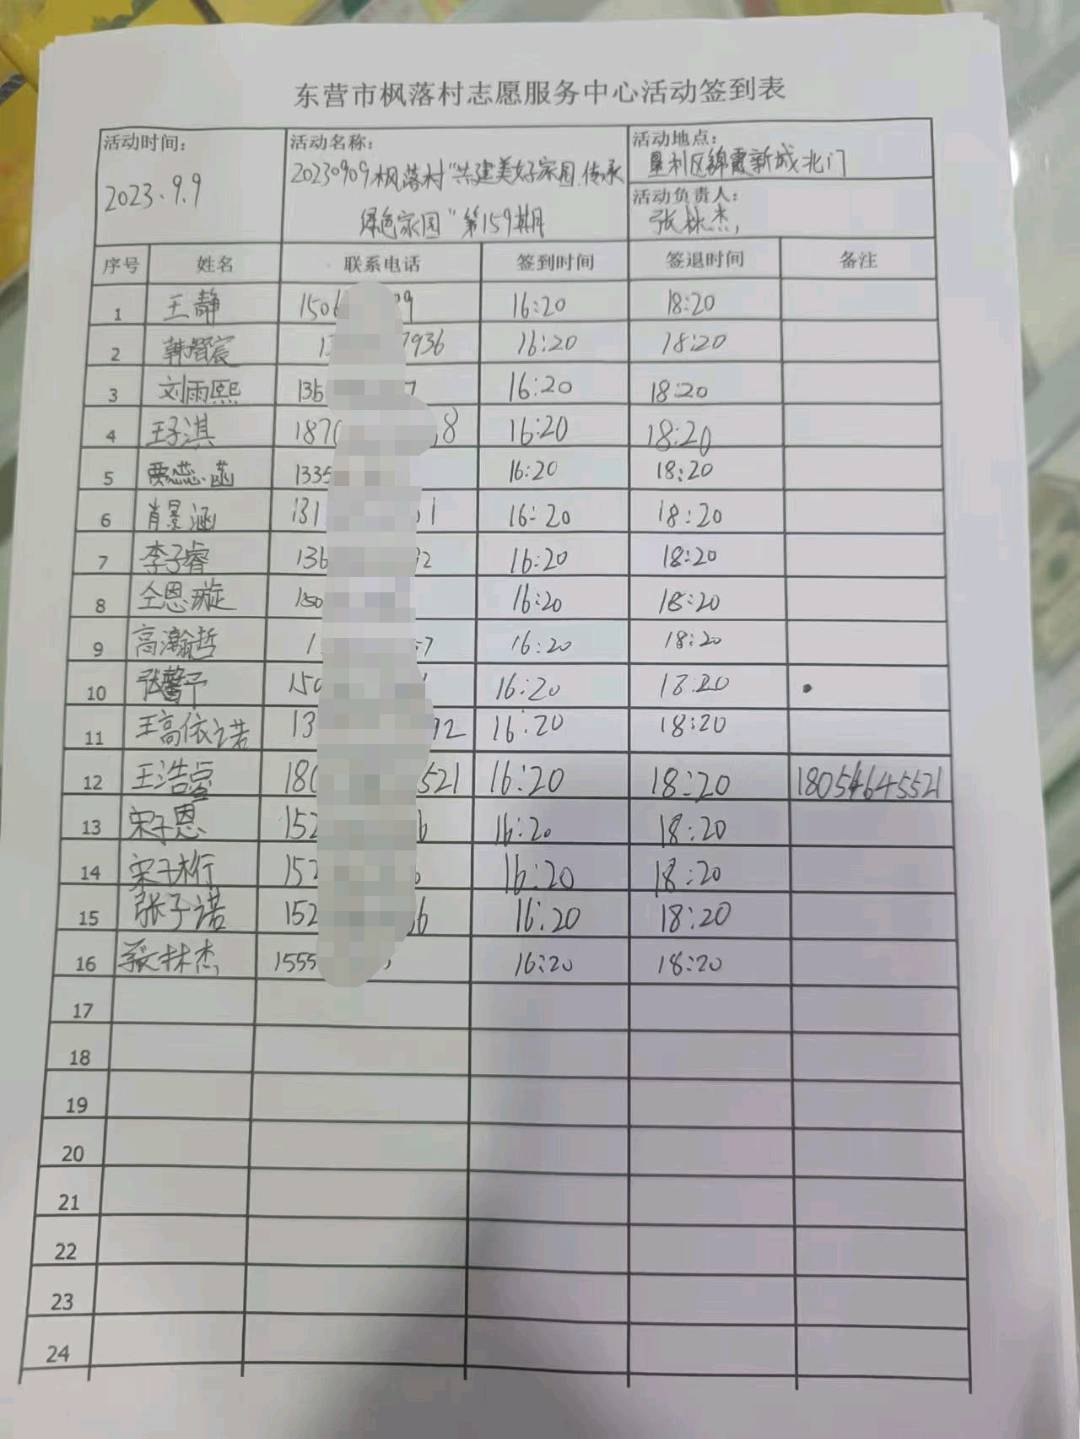 东营市枫落村志愿服务中心活动签到表
活动时间：
2023.9.9
活动名称：
20230909枫落村“共建美好家园,传承
绿色家园”第159期
活动地点：
垦利区锦霞新城北门
活动负责人：
张林杰
序号 姓名 联系电话 签到时间 签退时间 备注
1 王静 150 16:20 18:20
2 韩智宸 7936 16:20 18:20
3 刘雨熙 16:20 18:20
4 王子淇 187 8 16:20 18:20
5 贾蕊菡 1335 16:20 18:20
6 肖景涵 131 1 16:20 18:20
7 李子睿 136 2 16:20 18:20
8 仝恩璇 150 16:20 18:20
9 高瀚哲 1 7 16:20 18:20
10 张馨予 150 16:20 18:20
11 王高依诺 13 92 16:20 18:20
12 王浩 180 521 16:20 18:20 18054645521
13 宋子恩 152 6 16:20 18:20
14 宋子桁 152 16:20 18:20
15 张子诺 152 6 16:20 18:20
16 张林杰 1555 16:20 18:20
17
18
19
20
21
22
23
24